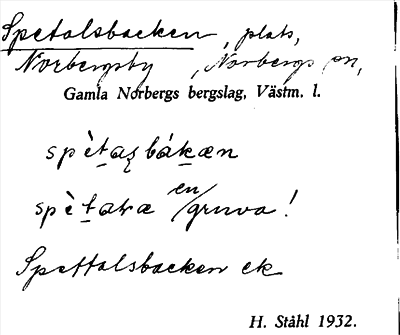 Spetalsbacken, plats,
Norbergsby, Norbergs sn,
Gamla Norbergs bergslag, Västm. l.
spè̀tasbákæn
spètara en/gruva!
Spettalsbacken ek
H. Ståhl 1932.